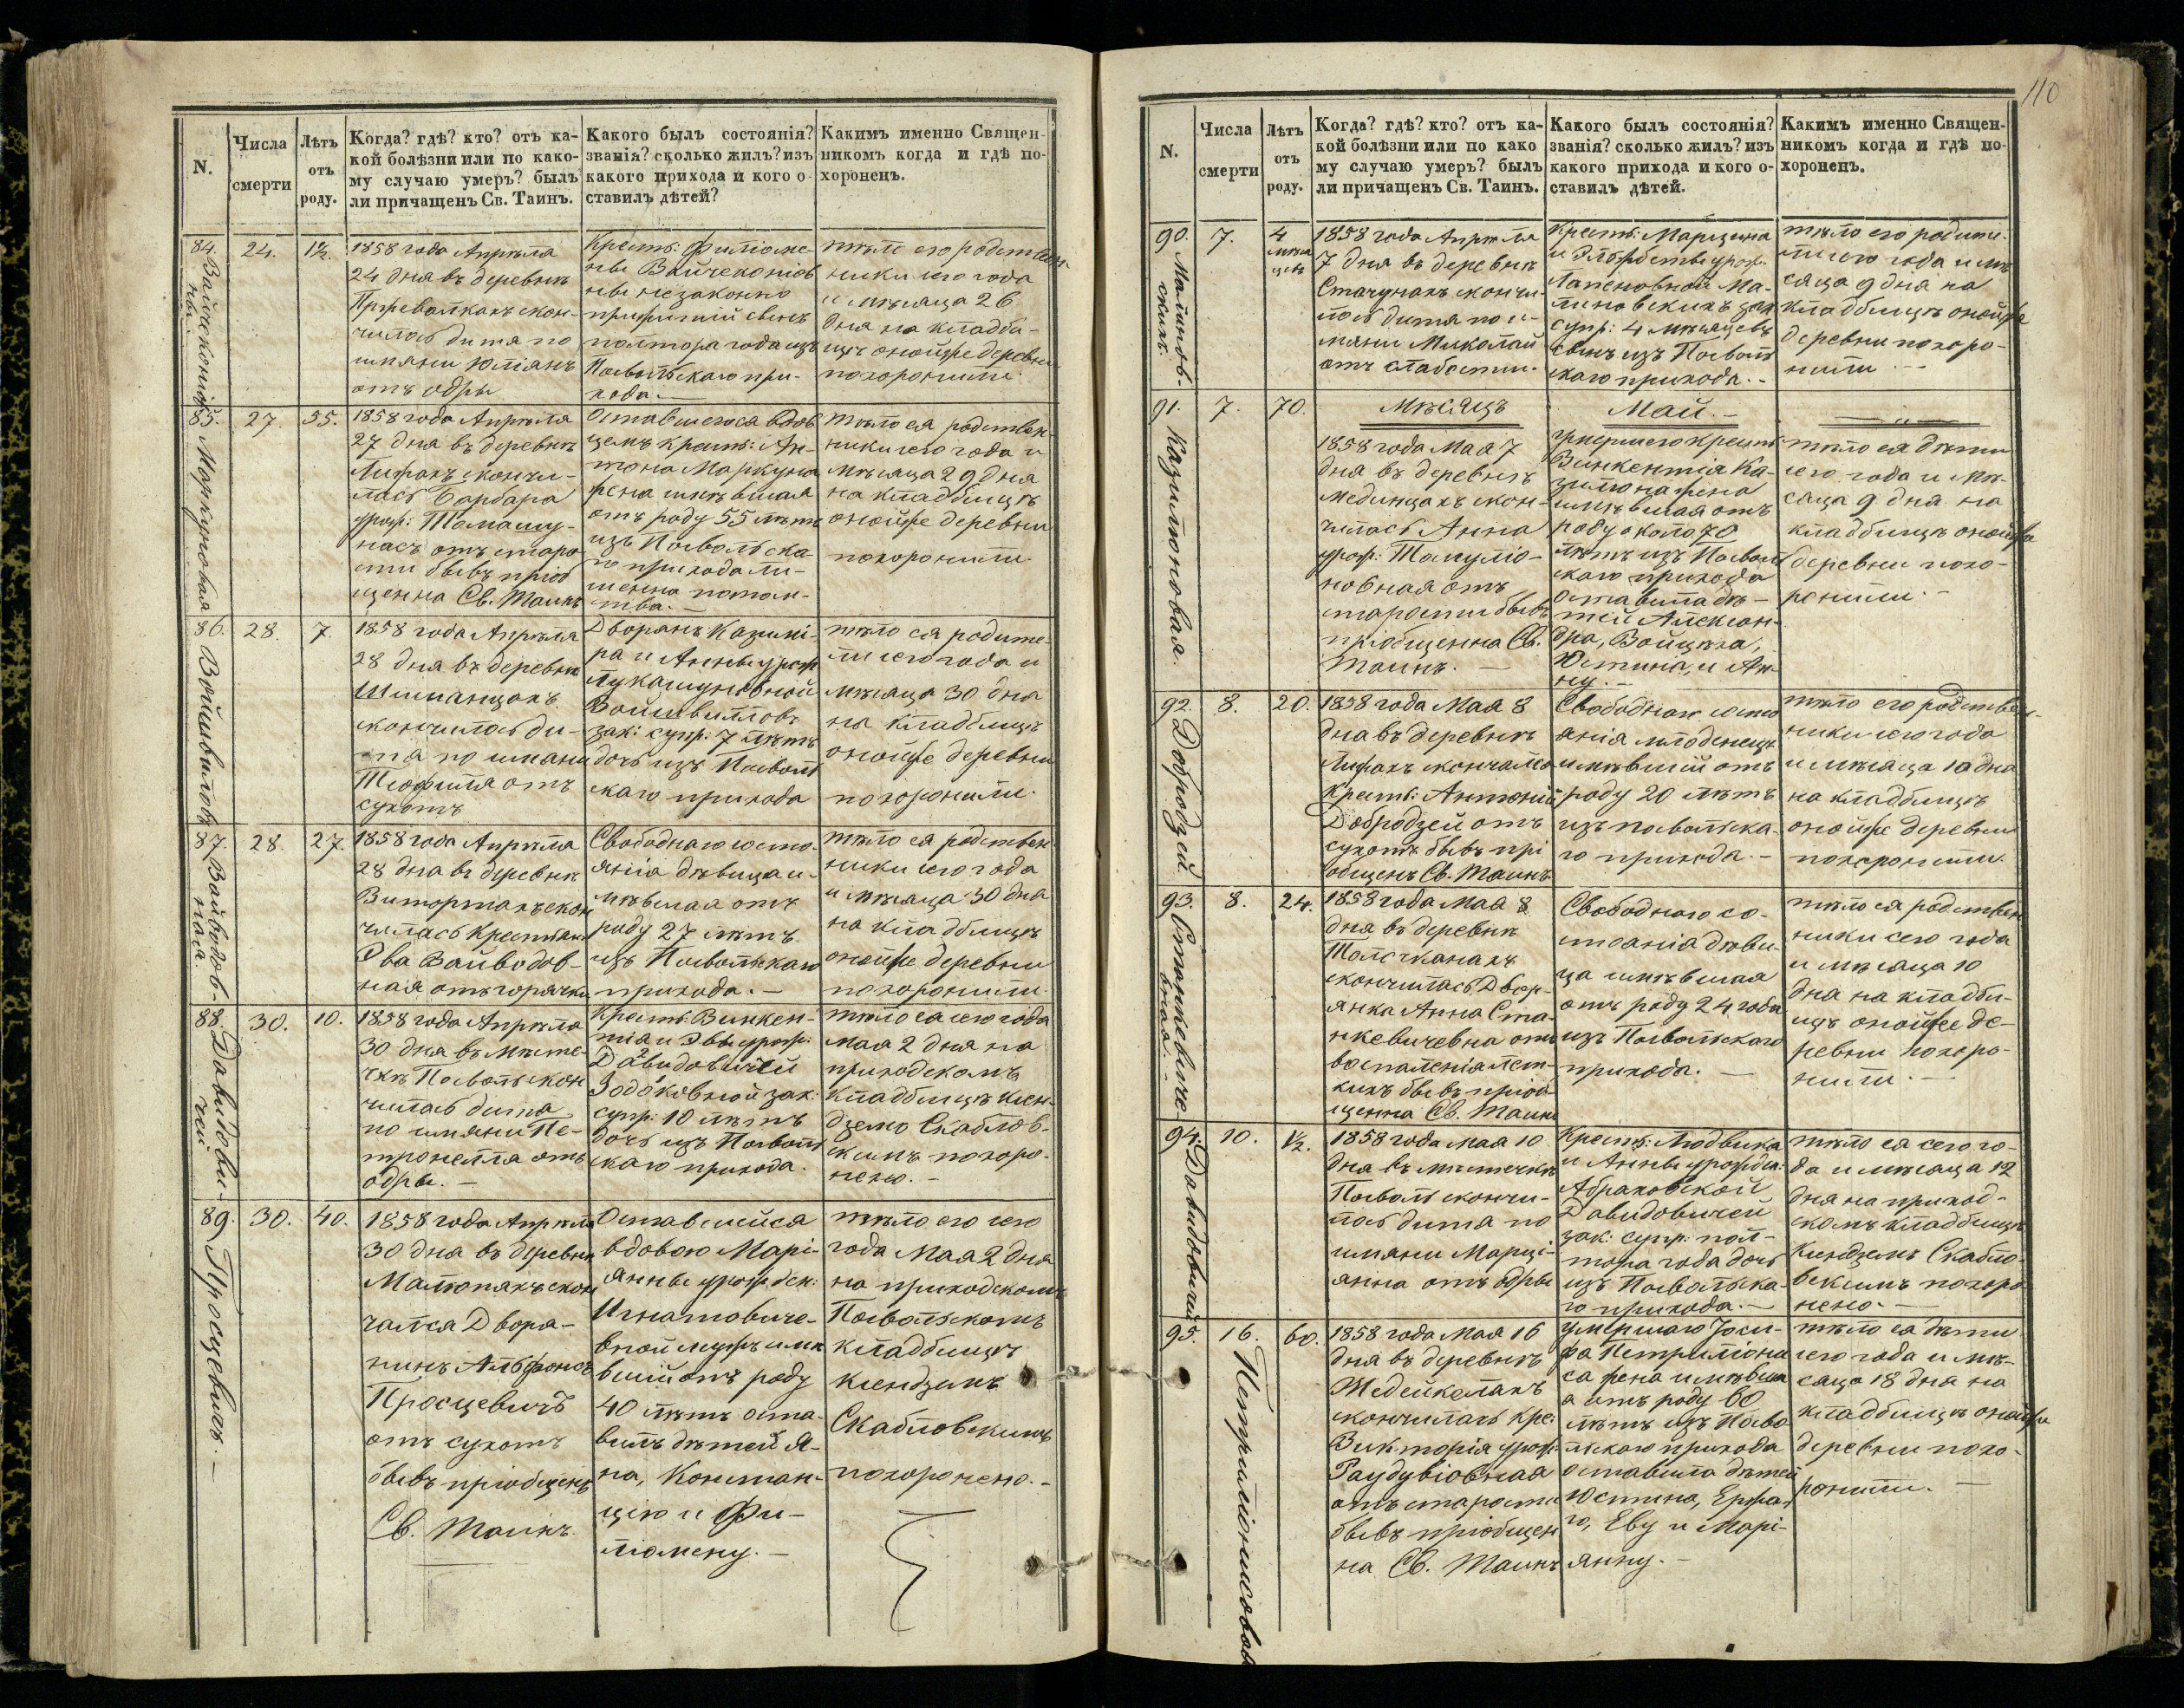 N.
Числа
смерти
Лѣтъ
отъ
роду.
Когда? гдѣ? кто? отъ ка-
кой болѣзни или по како-
му случаю умеръ? былъ
ли причащенъ Св. Таинъ.
Какого былъ состоянія?
званія? сколько жилъ? изъ
какого прихода и кого о-
ставилъ дѣтей?
Какимъ именно Священ-
никомъ когда и гдѣ по-
хороненъ.
84.
24.
1½.
1858 года Апрѣля
24 дня въ деревнѣ
скон-
чилось дитя по
имяни Юліянъ
отъ одры
незаконно
прижитый сынъ
полтора года изъ
Посвольскаго при-
хода.—
тѣло его родствен-
ники сего года
и мѣсяца 26
дня на кладби-
щѣ онойже деревни
похоронили.
85.
Маркуновая
27.
55.
1858 года Апрѣля
27 дня въ деревнѣ
скончи-
лась Барбара
урож: Тамашу-
насъ отъ старо
сти бывъ пріоб
щенна Св. Таинъ
Оставшегося вдов
цемъ крест: Ан-
тона Маркуна
жена имѣвшая
отъ роду 55 лѣтъ
изъ Посвольска-
го прихода ли-
шенна потом-
ства.—
тѣло ея родствен-
ники сего года и
мѣсяца 29 дня
на кладбищѣ
онойже деревни
похоронили.
86.
Войшвиловъ
28.
7.
1858 года Апрѣля
28 дня въ деревнѣ
Шиманцахъ
скончилось ди-
тя по имяни
Теофиля отъ
сухотъ
Дворянъ Казимі-
ра и Анны урож
Лукашуновной
Войшвилловъ
зак: супр: 7 лѣтъ
дочь изъ Посволь
скаго прихода
тѣло ея родите-
ли сего года и
мѣсяца 30 дня
на кладбищѣ
онойже деревни
похоронили.
87.
Вайводов-
ная.
28.
27.
1858 года Апрѣля
28 дня въ деревнѣ
скон
чилась крестьянка
Эва Вайводов-
ная отъ горячки
Свободнаго состо-
янія дѣвица и-
мѣвшая отъ
роду 27 лѣтъ.
изъ Посвольскаго
прихода.—
тѣло ея родствен
ники сего года
и мѣсяца 30 дня
на кладбищѣ
онойже деревни
похоронили.
88.
Давидови-
чей
30.
10.
1858 года Апрѣля
30 дня въ мѣсте-
чкѣ Посволь скон
чилась дитя
по имяни Пе-
тронелля отъ
одры.—
Крест: Винкен-
тія и Эвы урож:
Давидовичей
зак:
супр: 10 лѣтъ
дочь изъ Посволь
скаго прихода.
тѣло ея сего года
мая 2 дня на
приходскомъ
кладбищѣ ксен-
дземъ Скаблов-
скимъ похоро-
нено.—
89.
Просцевичъ.—
30.
40.
1858 года Апрѣля
30 дня въ деревнѣ
скон
чался Дворя-
нинъ Альфонсъ
Просцевичъ
отъ сухотъ
бывъ пріобщенъ
Св. Таинъ.
Оставшейся
вдовою Марі-
янны урожден:
Игнатовиче-
вной мужъ имѣ
вшій отъ роду
40 лѣтъ оста-
вилъ дѣтей Я-
на, Констан-
цію и Фи-
ломену.—
тѣло его сего
года Мая 2 дня
на приходскомъ
Посвольскомъ
кладбищѣ
ксендземъ
Скабловскимъ
похоронено.—
110
N.
Числа
смерти
Лѣтъ
отъ
роду.
Когда? гдѣ? кто? отъ ка-
кой болѣзни или по како
му случаю умеръ? былъ
ли причащенъ Св. Таинъ.
Какого былъ состоянія?
званія? сколько жилъ? изъ
какого прихода и кого о-
ставилъ дѣтей.
Какимъ именно Священ-
никомъ когда и гдѣ по-
хороненъ.
90.
Малинов-
скихъ.
7.
4
мѣся
цевъ
1858 года Апрѣля
7 дня въ деревнѣ
Стачунахъ скончи-
лось дитя по и-
мяни Миколай
отъ слабости.
Крест: Марцина
и Эльжбеты урож:
Ма-
линовскихъ зак
супр: 4 мѣсяцевъ
сынъ изъ Посволь
скаго прихода.—
тѣло его родите-
ли сего года и мѣ
сяца 9 дня на
кладбищѣ онойже
деревни похоро-
нили.—
91.
Казилюновая.
7.
70.
Мѣсяцъ
Май.—
1858 года Мая 7
дня въ деревнѣ
Мединцахъ скон-
чилась Анна
урож: Тамулю-
новная отъ
старости бывъ
пріобщенна Св.
Таинъ.—
умершего крест:
Винкентія Ка-
зилюна жена
имѣвшая отъ
роду около 70
лѣтъ изъ Посволь
скаго прихода
оставила дѣ-
тей Алексан-
дра, Войцѣха,
Юстина, и Ан-
ну.—
тѣло ея дѣти
сего года и мѣ-
сяца 9 дня на
кладбищѣ онойже
деревни похо-
ронили.—
92.
Добродзей.
8.
20.
1858 года Мая 8
дня въ деревнѣ
скончался
Крест: Антоній
Добродзей отъ
сухотъ бывъ прі
общенъ Св. Таинъ
Свободнаго состо
янія младенецъ
имѣвшій отъ
роду 20 лѣтъ
изъ Посвольска-
го прихода.—
тѣло его родствен-
ники сего года
и мѣсяца 10 дня
на кладбищѣ
онойже деревни
похоронили.
93.
Станкевиче-
вная.—
8.
24.
1858 года Мая 8
дня въ деревнѣ
Толочканахъ
скончилась Двор-
янка Анна Ста-
нкевичевна отъ
воспаленія лег-
кихъ бывъ пріоб
щенна Св. Таинъ
Свободнаго со-
стоянія дѣви-
ца имѣвшая
отъ роду 24 года
изъ Посвольскаго
прихода.—
тѣло ея родствен
ники сего года
и мѣсяца 10
дня на кладби-
щѣ онойже де-
ревни похоро-
нили.—
94.
Давидовичей
10.
1½.
1858 года Мая 10
дня въ мѣстечкѣ
Посволь скончи-
лась дитя по
имяни Марці-
янна отъ одры
Крест: Людвика
и Анны урожден:
Абраховской
Давидовичей
зак: супр: пол-
тора года дочь
изъ Посвольска-
го прихода.—
тѣло ея сего го-
да и мѣсяца 12
дня на приход-
скомъ кладбищѣ
Ксендземъ Скабло-
вскимъ похоро
нено.—
95.
16.
60.
1858 года Мая 16
дня въ деревнѣ
Жедейкелахъ
скончилась Кре:
Викторія урож:
Раудувіовная
отъ старости
бывъ пріобщен
на Св. Таинъ
умершаго Іоси-
фа Петрилюни
са жена имѣвша
я отъ роду 60
лѣтъ изъ Посво
льскаго прихода
оставила дѣтей
Юстина,
Еву и Марі-
янну.—
тѣло ея дѣти
сего года и мѣ-
сяца 18 дня на
кладбищѣ онойже
деревни похо-
ронили.—